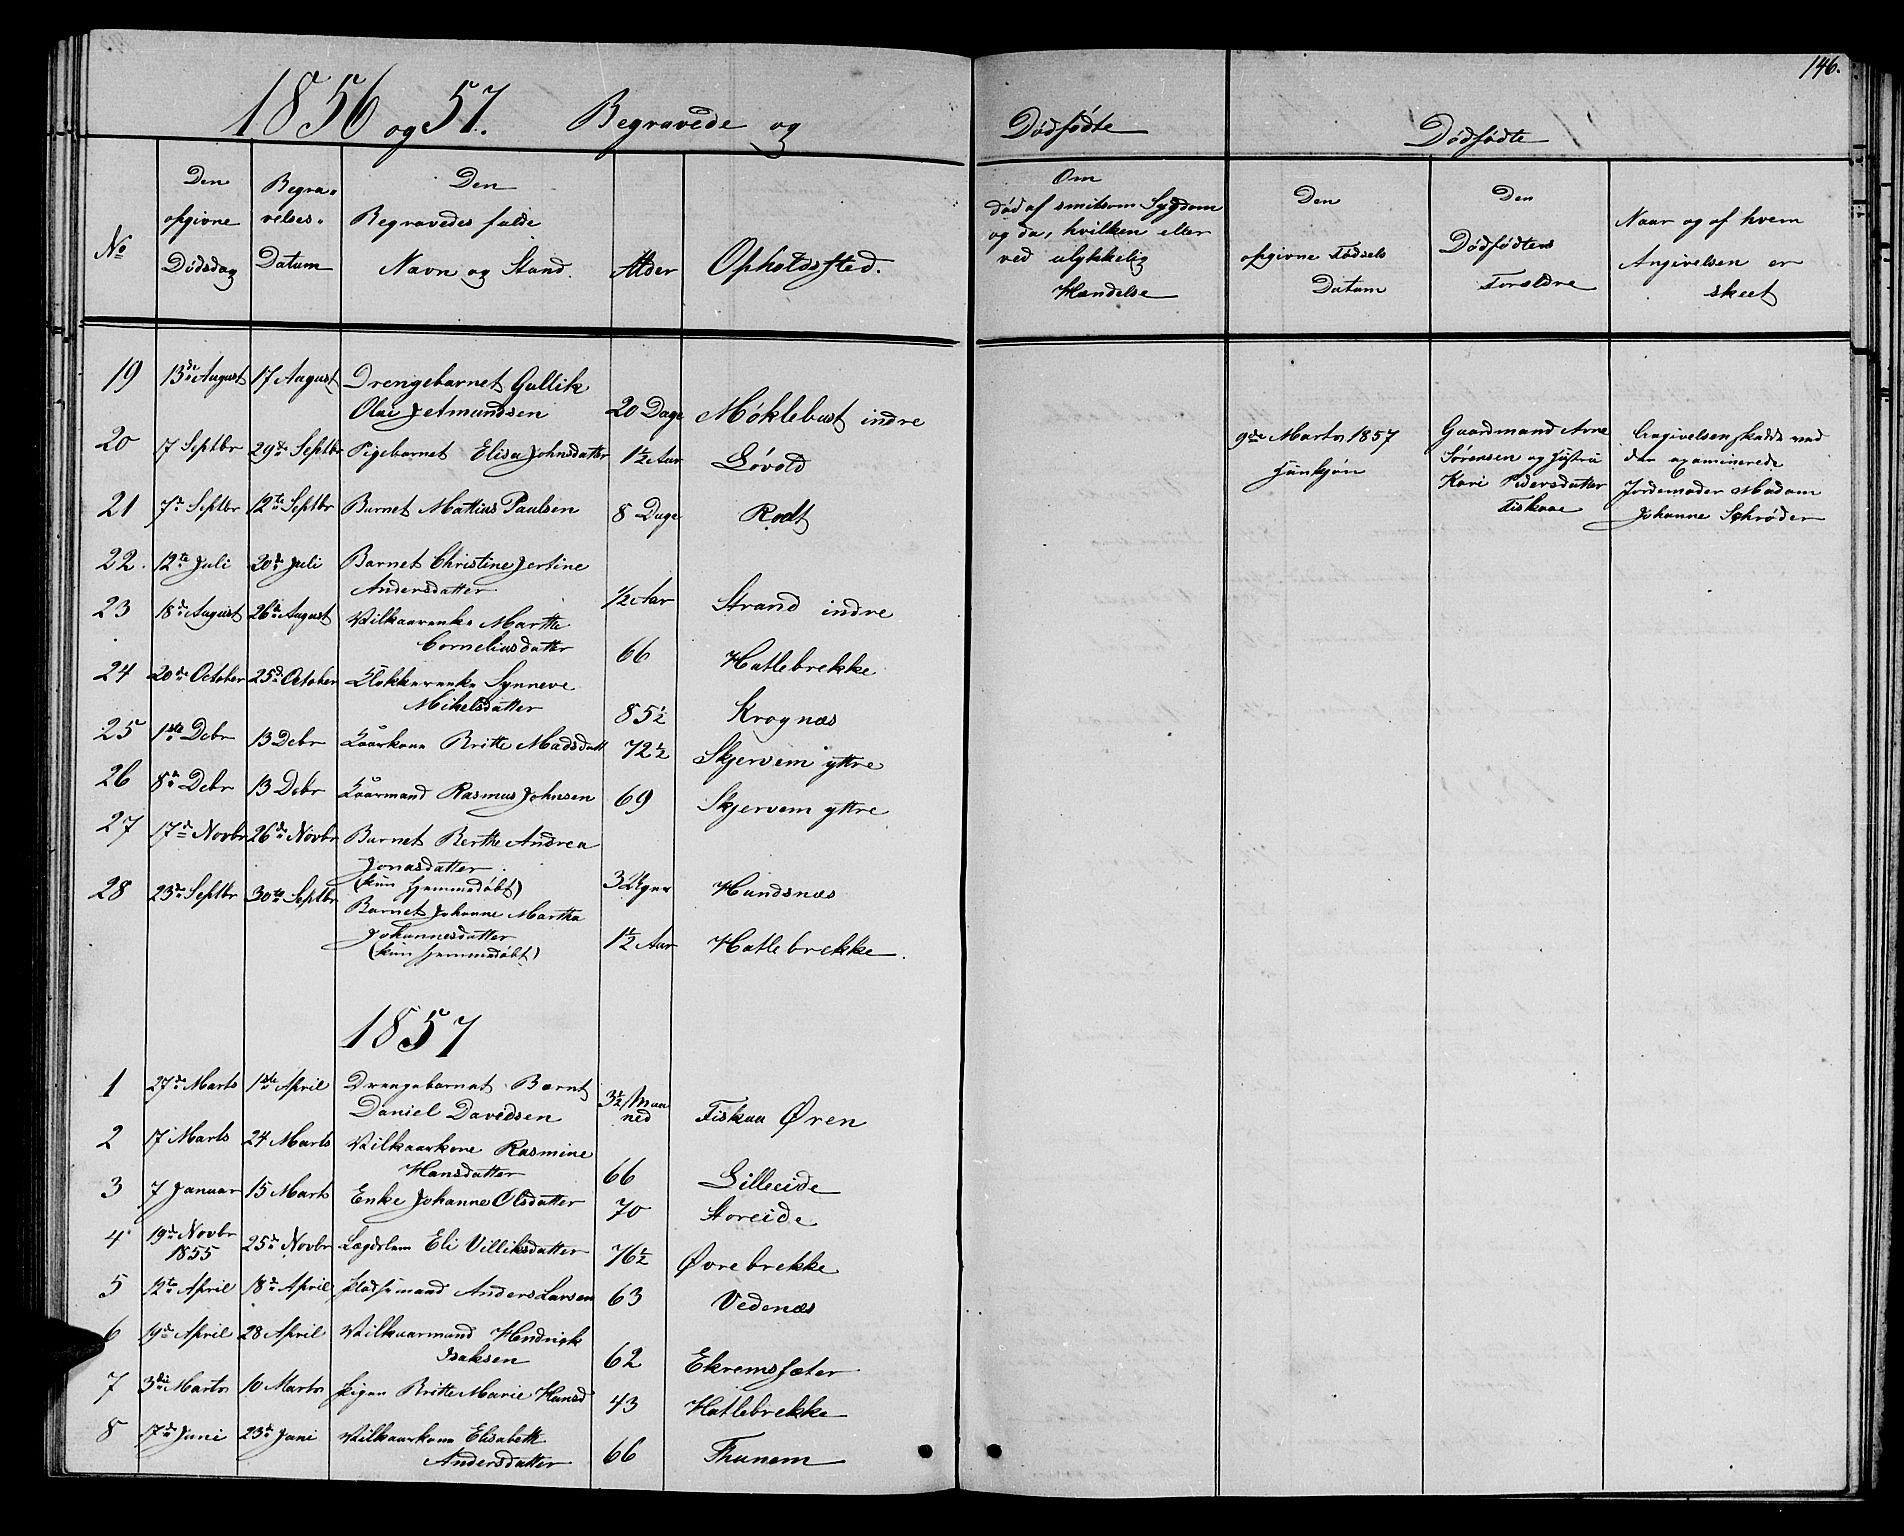 146.
1856 og 57. Begravede og Dødfødte Dødfødte
No
Den opgivne Dødsdag
Begravelses Datum
Den Begravedes fulde Navn og Stand.
Alder
Opholdssted.
Om død af smitsom Sygdom og da, hvilken eller ved ulykkelig Hændelse
Den opgivne Fødsels Datum
Den Dødfødtes Forældre
Naar og af hvem Angivelsen er skeet
19 13de August 17 August Drengebarnet Gullik
Olai Jetmundsen 20 Dage Møklebust indre
20 7 Septbr 29de Septbr Pigebarnet Elisa Johnsdatter 1½ Aar Løvold
21 7de Septbr 12te Septbr Barnet Mattias Paulsen 8 Dage Rødt
22. 12te Juli 20de Juli Barnet Christine Jertine
Andersdatter ½ Aar Strand indre
23 18de August 26de August Vilkaarenke Marthe
Corneliusdatter 66 Hatlebrekke
24 20de October 25de October Klokkerenke Synneve
Mikelsdatter 85½ Krognæs
25 1ste Debr 13 Debr Kaarkone Britte Madsdatt 72½ Skjervem yttre
26 8de Debr 13 Debr Kaarmand Rasmus Johnsen 69 Skjervem yttre
27 17de Novbr 26de Novbr Barnet Berthe Andrea
Jonasdatter.
(kun hjemmedøbt) 3 Uger Hundsnæs
28 23de Septbr 30te Septbr Barnet Johanne Martha
Johannesdatter
(kun hjemmedøbt) 1½ Aar Hatlebrekke.
1857
1 27de Marts 1ste April Drengebarnet Bernt
Daniel Davidsen 3½ Maaned Fiskaa Øren
2 17 Marts 24 Marts Vilkaarkone Rasmine
Hansdatter 66 Lilleeide
3 7 Januar 15 Marts Enke Johanne Olsdatter 70 Storeide
4 19de Novbr 1855 25de Novbr Lægdslem Eli Villiksdatter 76½ Øvrebrekke
5 12te April 18de April Pladsemand Anders Larsen 63 Vedenæs
6 19de April 28 April Vilkaarmand Hendrik
Isaksen 62 Ekremsæter
7 3die Marts 10 Marts Pigen Britte Marie Hansd 43 Hatlebrekke
8 17de Juni 23de Juni Vilkaarkone Elisabeth
Andersdatter 66 Thunem
9de Marts 1857
Hankjøn
Gaardmand Arne
Sørensen og Hustru
Kari Pedersdatter
Fiskaae
Angivelsen skedde ved
den examinerede
Jordemoder Madam
Johanne Schrøder